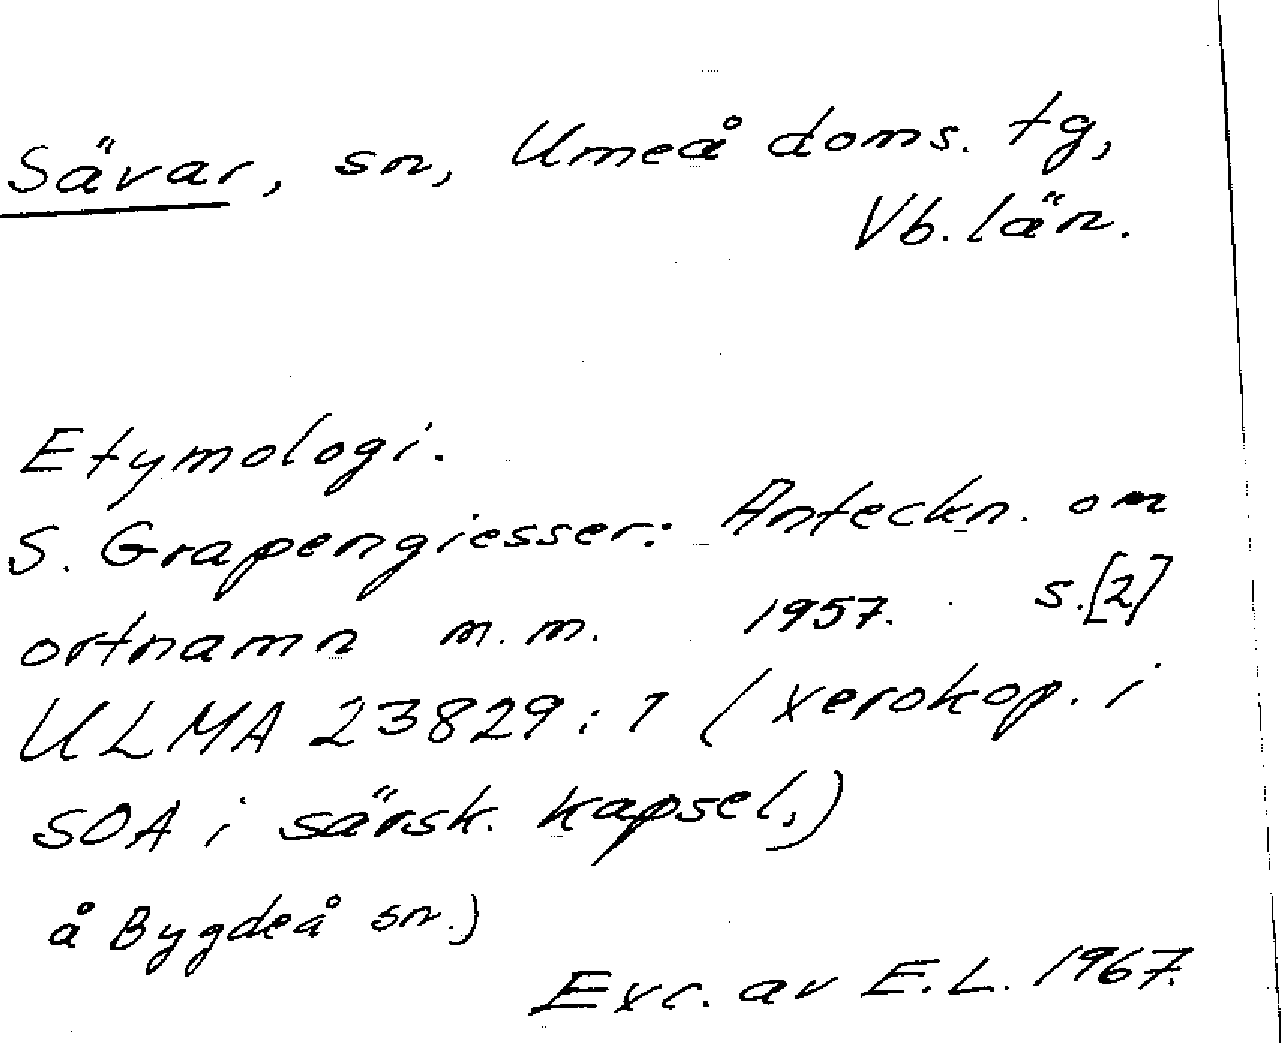 Sävar, sn, Umeå doms. tg,
Vb. län.
Etymologi.
S. Grapengiesser: Anteckn. om
ortnamn m.m. 1957. s.[2]
ULMA 23829:1 (xerokop. i
SOA i särsk. kapsel,)
å Bygdeå sn.)
Exc. av E.L. 1967.